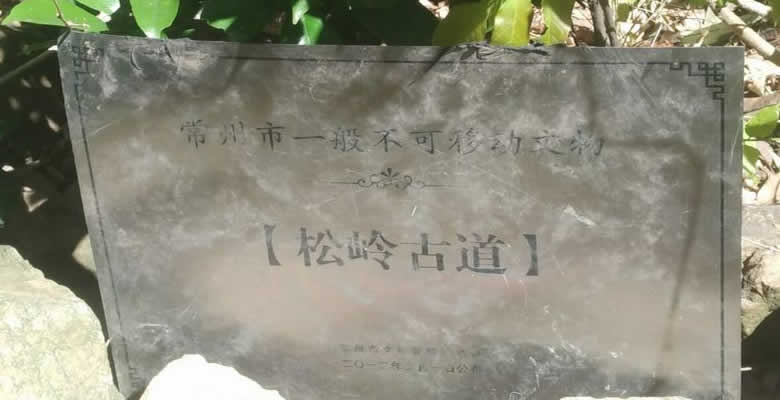 常州市一般不可移动文物
【松岭古道】
二〇一二年 月一日公布